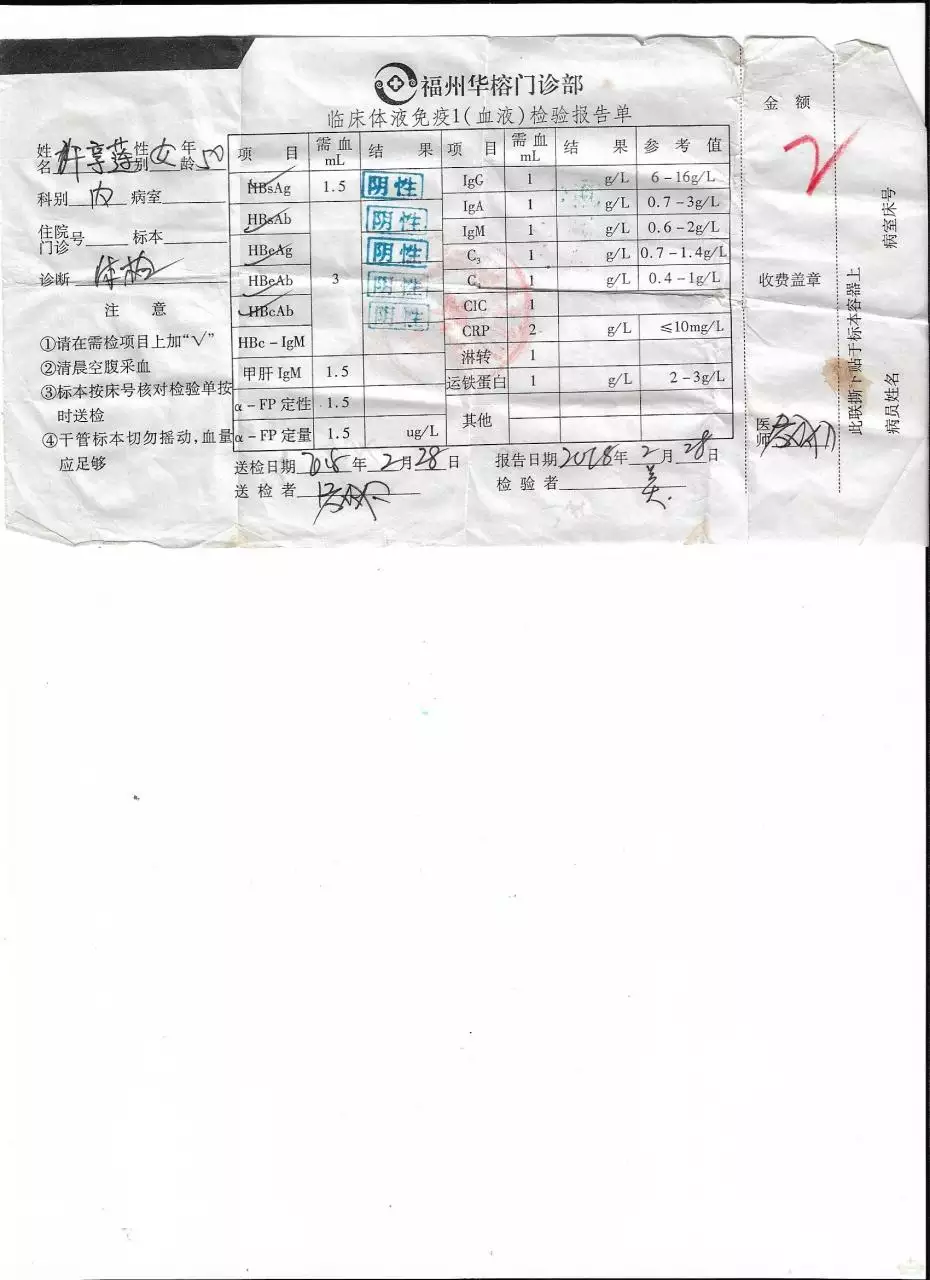 福州华榕门诊部
临床体液免疫1(血液)检验报告单
姓名 许享萍 性别 女 年龄 50
科别 内 病室
住院门诊号 标本
诊断 体检
注 意
①请在需检项目上加“√”
②清晨空腹采血
③标本按床号核对检验单按
时送检
④干管标本切勿摇动,血量
应足够
项 目 需血mL 结 果 项 目 需血mL 结 果 参考值
HBsAg 1.5 阴性 IgG 1 g/L 6-16g/L
HBsAb 阴性 IgA 1 g/L 0.7-3g/L
HBeAg 阴性 IgM 1 g/L 0.6-2g/L
HBeAb 3 阴性 C3 1 g/L 0.7-1.4g/L
HBcAb 阴性 C 1 g/L 0.4-1g/L
HBc-IgM CIC 1
CRP 2 g/L ≤10mg/L
甲肝IgM 1.5 淋转 1
α-FP定性 1.5 运铁蛋白 1 g/L 2-3g/L
α-FP定量 1.5 ug/L 其他
送检日期 年 2月28日 报告日期2018年2月28日
送检者 检验者 美
金 额
2
收费盖章
医师
此联撕下贴于标本容器上
病室床号
病员姓名